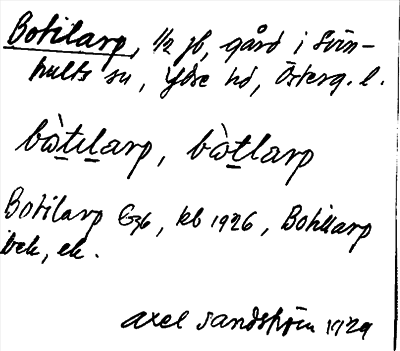 Botilarp, 1/2 jb, gård i Svin-
hults sn, Ydre hd, Österg. l.
bò̱tɩḻarp, bò̱ṯlarp
Botilarp Gzb, kb 1926, Botilarp
bek, ek.
Axel Sandström 1929